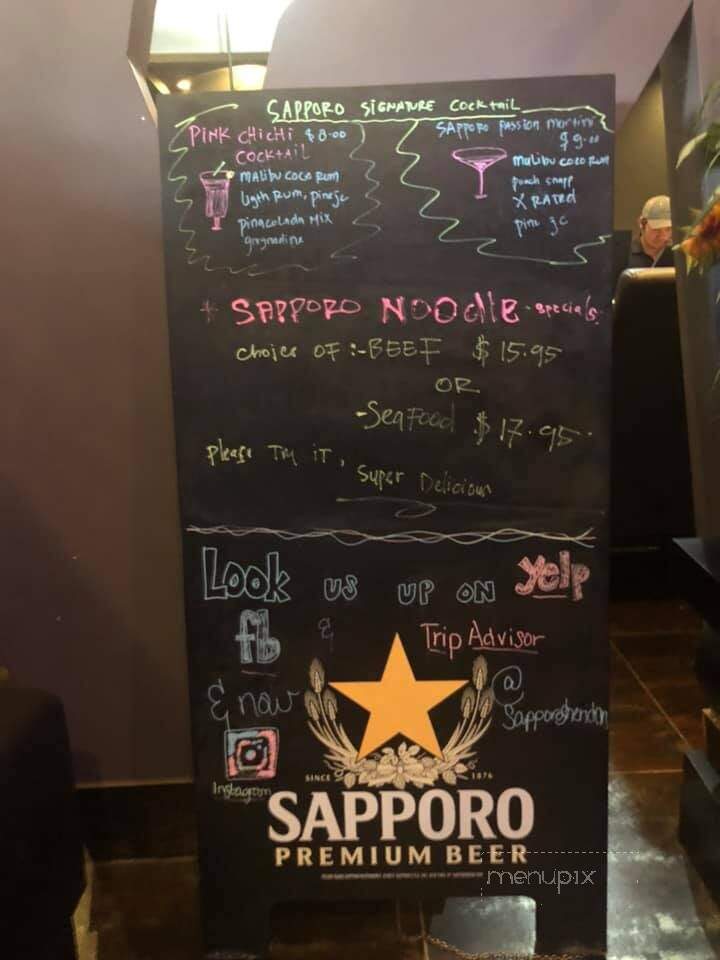 SAPPORO SIGNATURE COCKTAIL
PINK CHICHI $8.00
COCKTAIL
MALIBU COCO RUM
LIGTH RUM, PINEJC
PINACOLADA MIX
SAPPORO PASSION MARTINI
$9.00
MALIBU COCO RUM
X RATED
PINE JC
* SAPPORO NOOdlE - specials.
CHOICE OF :- BEEF $15.95
OR
- SeaFood $17.95.
Please TRY IT,
Super Delicious
Look US UP ON yelp
fb & Trip Advisor
& now @
Sapporoherndon
Instagram
SINCE 1876
SAPPORO
PREMIUM BEER
menupix